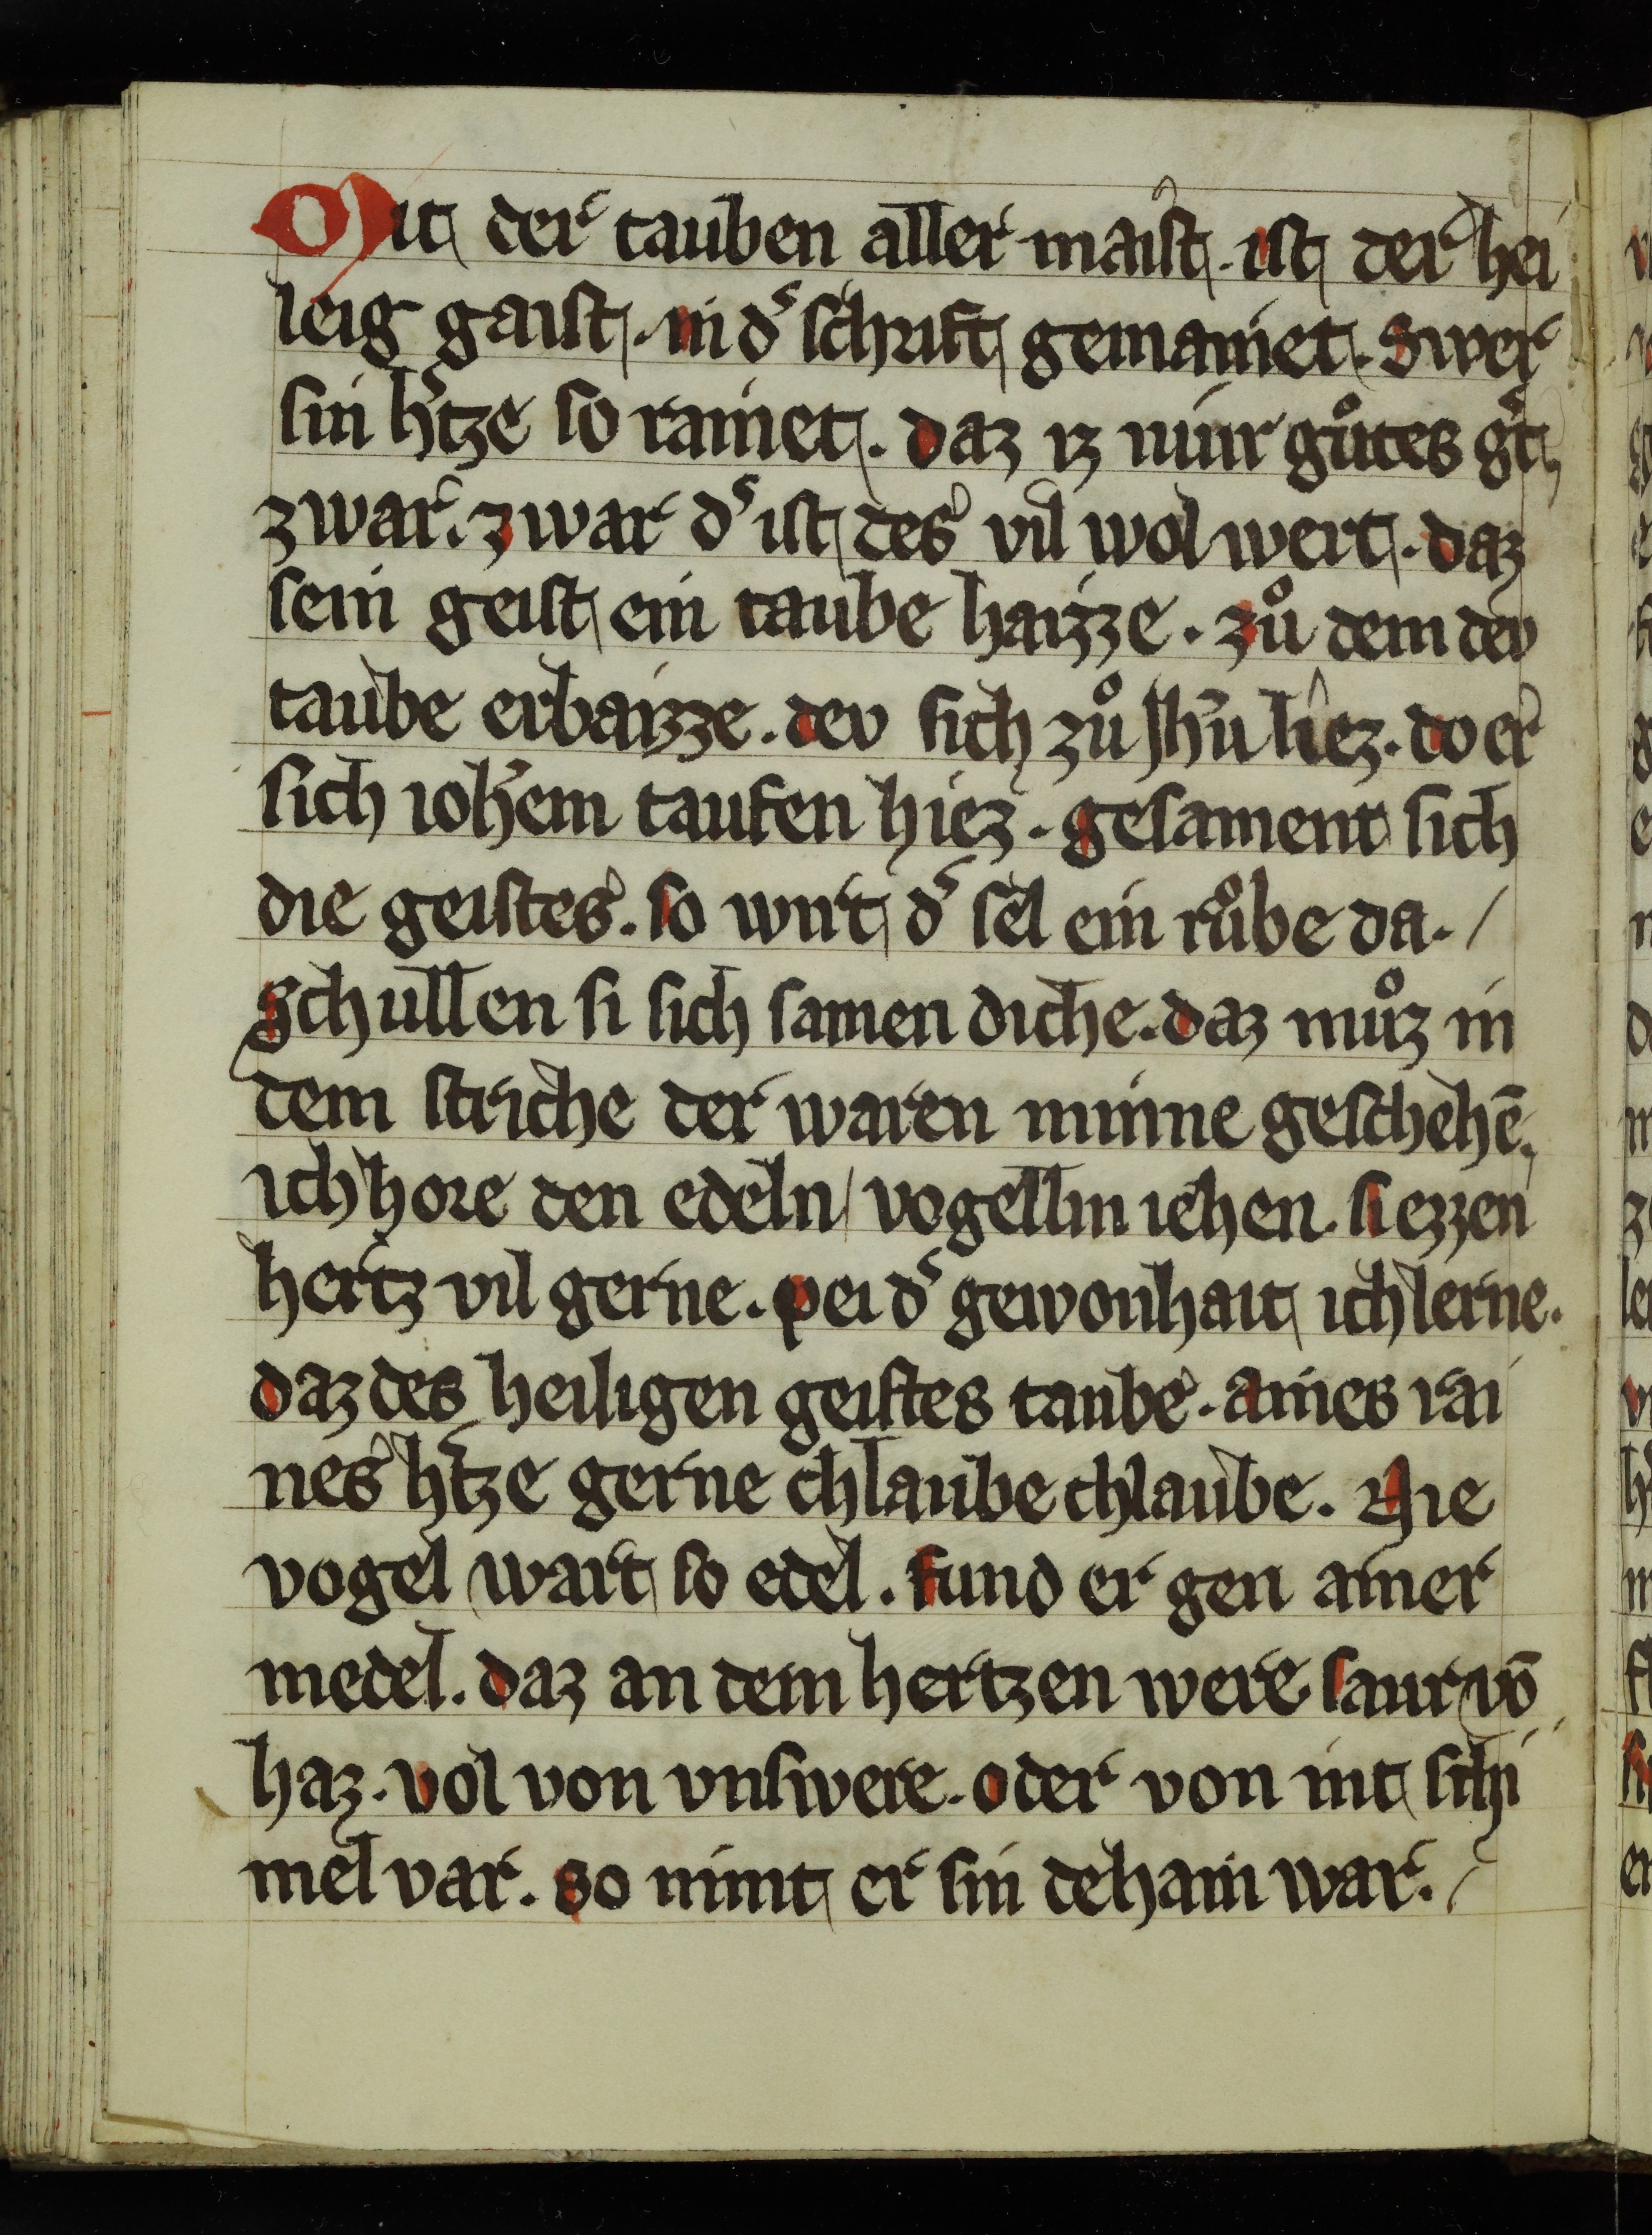 Mit der tauben aller maist. ist der hei
leig gaist. in dˢ schrift gemainet. Swer
sin hˢtze so rainet. daz iz nur guͦtes gˢt
zwar. zwar dˢ ist des vil wol wert. daz
sein geist ein taube haizze. zuͦ dem dev
taube erbaizze. dev sich zuͦ Jhū liez. do er
sich ioh̄em taufen hiez. gesament sich
die geistes. so wirt dˢ sel ein ruͦbe da. /
Schullen si sich samen diche. daz muͦz in
dem striche der waren minne geschehē.
ich hore den edeln vogellin iehen. si ezzen
hertz vil gerne. pei dˢ gewonhait ich lerne.
daz des heiligen geistes taube. aines rai
nes hˢtze gerne chlaube chlaube. Nie
vogel wart so edel. fund er gen ainer
medel. daz an dem hertzen were saur vō
haz. vol von vnswere. oder von nit schi
mel var. so nimt er sin dehain war. /